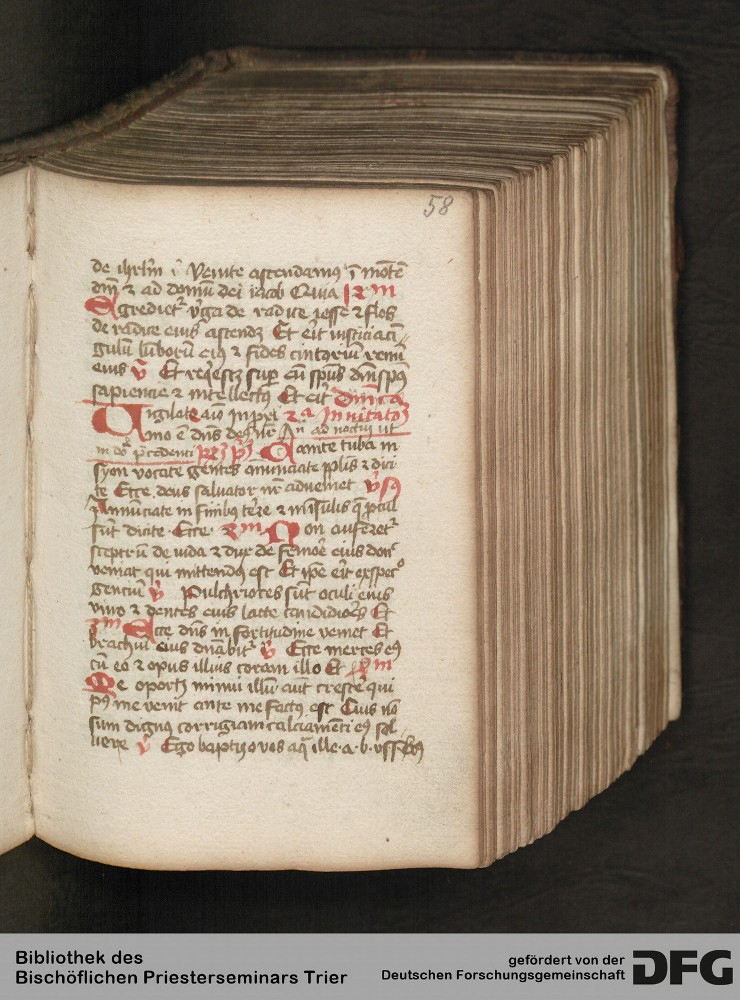 58
de ihrlm v Venite ascendamus i mote
dni & ad domu dei iacob Quia R m
Egrediet v'ga de radice iesse & flos
de radice eius ascendz Et erit iusticia ci
gulu luboru eiq & fides cinctoriu renu
eius v Et reqescz sup eu spus dni spus
sapiencie & intellectus Et erit Dnica
Vigilate aio In pxi 2a Inuitatoz
imo e dns deq nr An ad noctur ut
in do precedenti Canite tuba in
syon vocate gentes annunciate plis & dici
te Ecce deus saluator nr adueniet vsq
Annunciate in finibus tere & in insulis q pcul
sut dicite Ecce R m Non auferet
sceptru de iuda & dux de femore eius donc
veniat qui mittendus est Et ipe erit expect
genciu v Pulchriores sut oculi eius
vino & dentes eius lacte candidiores Et
R m Ecce dns in fortitudine veniet Et
brachiu eius dnabit v Ecce merces eq
cu eo & opus illius coram illo Et R m
Me oportz minui illu aut crescere qui
pq me venit ante me factus est Cuius no
sum dignus corrigiam calciamenti eq sol
uere v Ego baptizo vos aq ille a. b. vss
Bibliothek des
Bischöflichen Priesterseminars Trier
gefördert von der
Deutschen Forschungsgemeinschaft
DFG